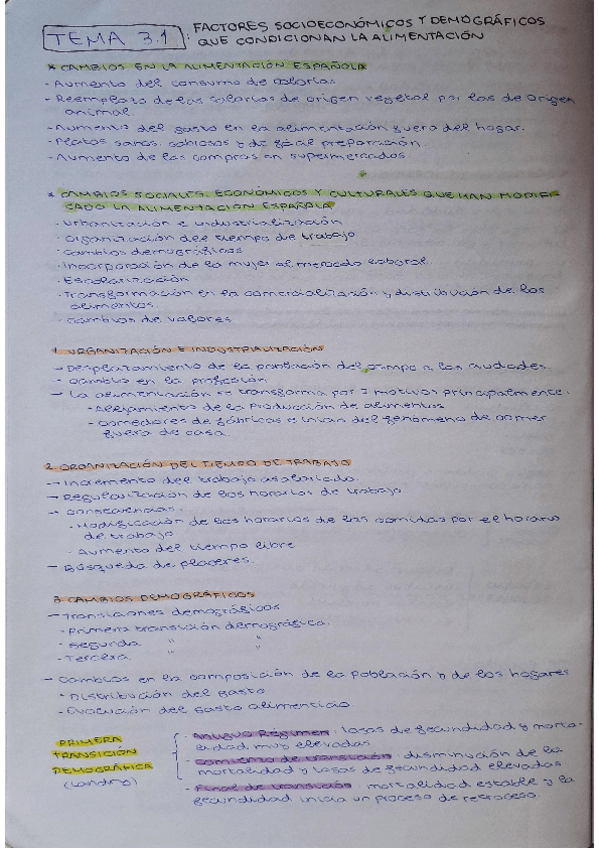 TEMA 3.1 : FACTORES SOCIOECONÓMICOS Y DEMOGRÁFICOS
QUE CONDICIONAN LA ALIMENTACIÓN
* CAMBIOS EN LA ALIMENTACIÓN ESPAÑOLA
- Aumento del consumo de calorías
- Reemplazo de las calorías de origen vegetal por las de origen
animal.
- Aumento del gasto en la alimentación fuera del hogar.
- Platos sanos, sabrosos y de fácil preparación
- Aumento de las compras en supermercados
* CAMBIOS SOCIALES, ECONÓMICOS Y CULTURALES QUE HAN MODIFI-
CADO LA ALIMENTACIÓN ESPAÑOLA
- Urbanización e industrialización
- Organización del tiempo de trabajo
- Cambios demográficos
- Incorporación de la mujer al mercado laboral.
- Escolarización
- Transformación en la comercialización y distribución de los
alimentos.
- Cambios de valores
1 URBANIZACIÓN E INDUSTRIALIZACIÓN
→ Desplazamiento de la población del campo a las ciudades.
- Cambio en la profesión
→ La alimentación se transforma por 2 motivos principalmente:
- Alejamiento de la producción de alimentos
- Comedores de fábricas e inician del fenómeno de comer
fuera de casa.
2 ORGANIZACIÓN DEL TIEMPO DE TRABAJO
→ Incremento del trabajo asalariado.
→ Regularización de los horarios de trabajo
→ Consecuencias:
- Modificación de los horarios de las comidas por el horario
de trabajo
- Aumento del tiempo libre
→ Búsqueda de placeres.
3 CAMBIOS DEMOGRÁFICOS
→ Transiciones demográficas
- Primera transición demográfica.
- Segunda " "
- Tercera " "
→ Cambios en la composición de la población y de los hogares
- Distribución del gasto
- Evolución del gasto alimenticio
PRIMERA
TRANSICIÓN
DEMOGRÁFICA
(Landry)
- Antiguo Régimen: tasas de fecundidad y morta-
lidad muy elevadas
- Comienzo de transición: disminución de la
mortalidad y tasas de fecundidad elevadas
- Final de transición: mortalidad estable y la
fecundidad inicia un proceso de retroceso.